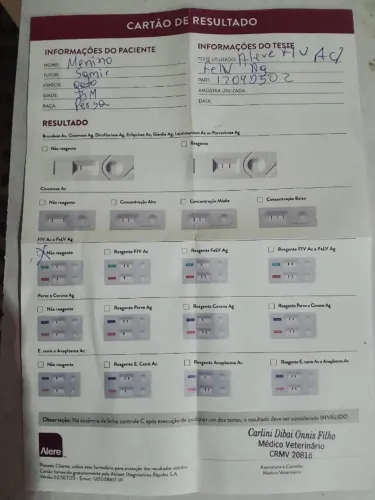 CARTÃO DE RESULTADO
INFORMAÇÕES DO PACIENTE
NOME: Menino
TUTOR: Samir
ESPÉCIE: Gato
IDADE: 8M
RAÇA: Persa
INFORMAÇÕES DO TESTE
TESTE UTILIZADO: Alere FIV Ac/
FeLV Ag
PART: 12049502
AMOSTRA UTILIZADA:
DATA:
RESULTADO
Brucelose Ac, Cinomose Ag, Dirofilariose Ag, Erliquiose Ac, Giardia Ag, Leishmaniose Ac ou Parvovirose Ag
Não reagente
Reagente
Cinomose Ac
Não reagente
Concentração Alta
Concentração Média
Concentração Baixa
FIV Ac e FeLV Ag
Não reagente
Reagente FIV Ac
Reagente FeLV Ag
Reagente FIV Ac e FeLV Ag
Parvo e Corona Ag
Não reagente
Reagente Parvo Ag
Reagente Corona Ag
Reagente Parvo e Corona Ag
E. canis e Anaplasma Ac
Não reagente
Reagente E. Canis Ac
Reagente Anaplasma Ac
Reagente E. canis Ac e Anaplasma Ac
Observação: Na ausência da linha controle C após execução de qualquer um dos testes, o resultado deve ser considerado INVÁLIDO.
Alere
Prezado Cliente, utilize este formulário para anotação dos resultados obtidos.
Carlini Dibai Onnis Filho
Médico Veterinário
CRMV 20816
Assinatura e Carimbo
Médico Veterinário